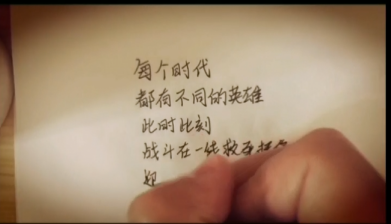 每个时代
都有不同的英雄
此时此刻
战斗在一线救死扶
迎